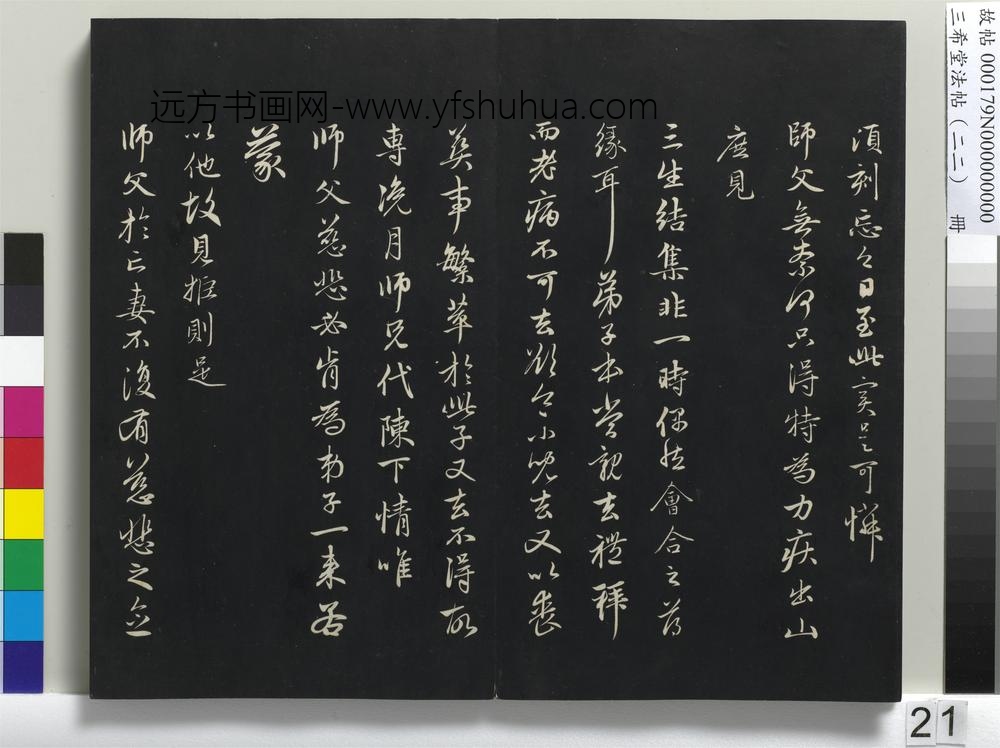 須刻忘之日至此實是可憐
師父無柰何只得特為力疾出山
庶見
三生結集非一時偶然會合之薄
緣耳弟子本當親去禮拜
而老病不可去欲令小兒去又以喪
葬事繁萃於此子又去不得故
專浼月師兄代陳下情唯
師父慈悲必肯為弟子一來若
蒙
以他故見拒則是
師父於亡妻不復有慈悲之念
远方书画网-www.yfshuhua.com
故帖 000179N000000000
三希堂法帖（二二） 冊
21